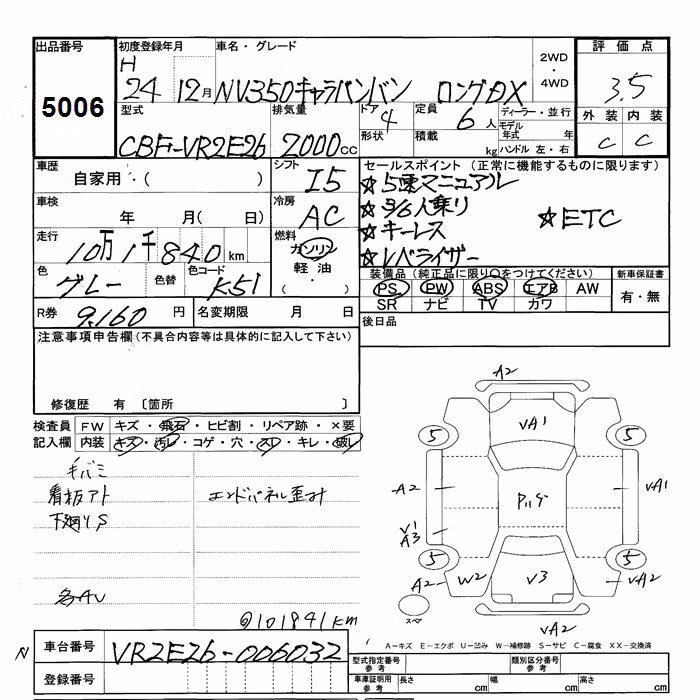 出品番号 初度登録年月 車名・グレード 2WD・4WD 評価点
5006 H 24 12月 NV350キャラバンバン ロングDX 3.5
型式 排気量 ドア 4 定員 6人 ディーラー・並行 外装 内装
CBF-VR2E26 2000cc 形状 積載 kg モデル年式 年 ハンドル 左・右 C C
車歴 シフト セールスポイント(正常に機能するものに限ります)
自家用・( ) I5 ☆5速マニュアル
車検 冷房 ☆3/6人乗り
年 月( 日) AC ☆キーレス ☆ETC
走行 燃料 ☆レベライザー
10万1千840km ガソリン
軽油・
・( )
色 色替 色コード 装備品(純正品に限り○をつけてください) 新車保証書
グレー K51 PS PW ABS エアB AW 有・無
SR ナビ TV カワ
R券 9,160円 名変期限 月 日 後日品
注意事項申告欄(不具合内容等は具体的に記入して下さい)
修復歴 有 〔箇所 〕
検査員 FW キズ・飛石・ヒビ割・リペア跡・×要
記入欄 内装 キズ・汚レ・コゲ・穴・スレ・キレ・破レ
毛バミ
看板アト エンドパネル歪み
下廻りS
各AU
@101841km
A2
VA1
5 5
A2 Pいタ VA1
V1
A3
5 5
A2 W2 V3 VA2
スペ
VA2
A-キズ E-エクボ U-凹み W-補修跡 S-サビ C-腐食 XX-交換済
N 車台番号 VR2E26-006032
登録番号
型式指定番号 参考 類別区分番号 参考
車庫証明用 参考 長さ cm 幅 cm 高さ cm